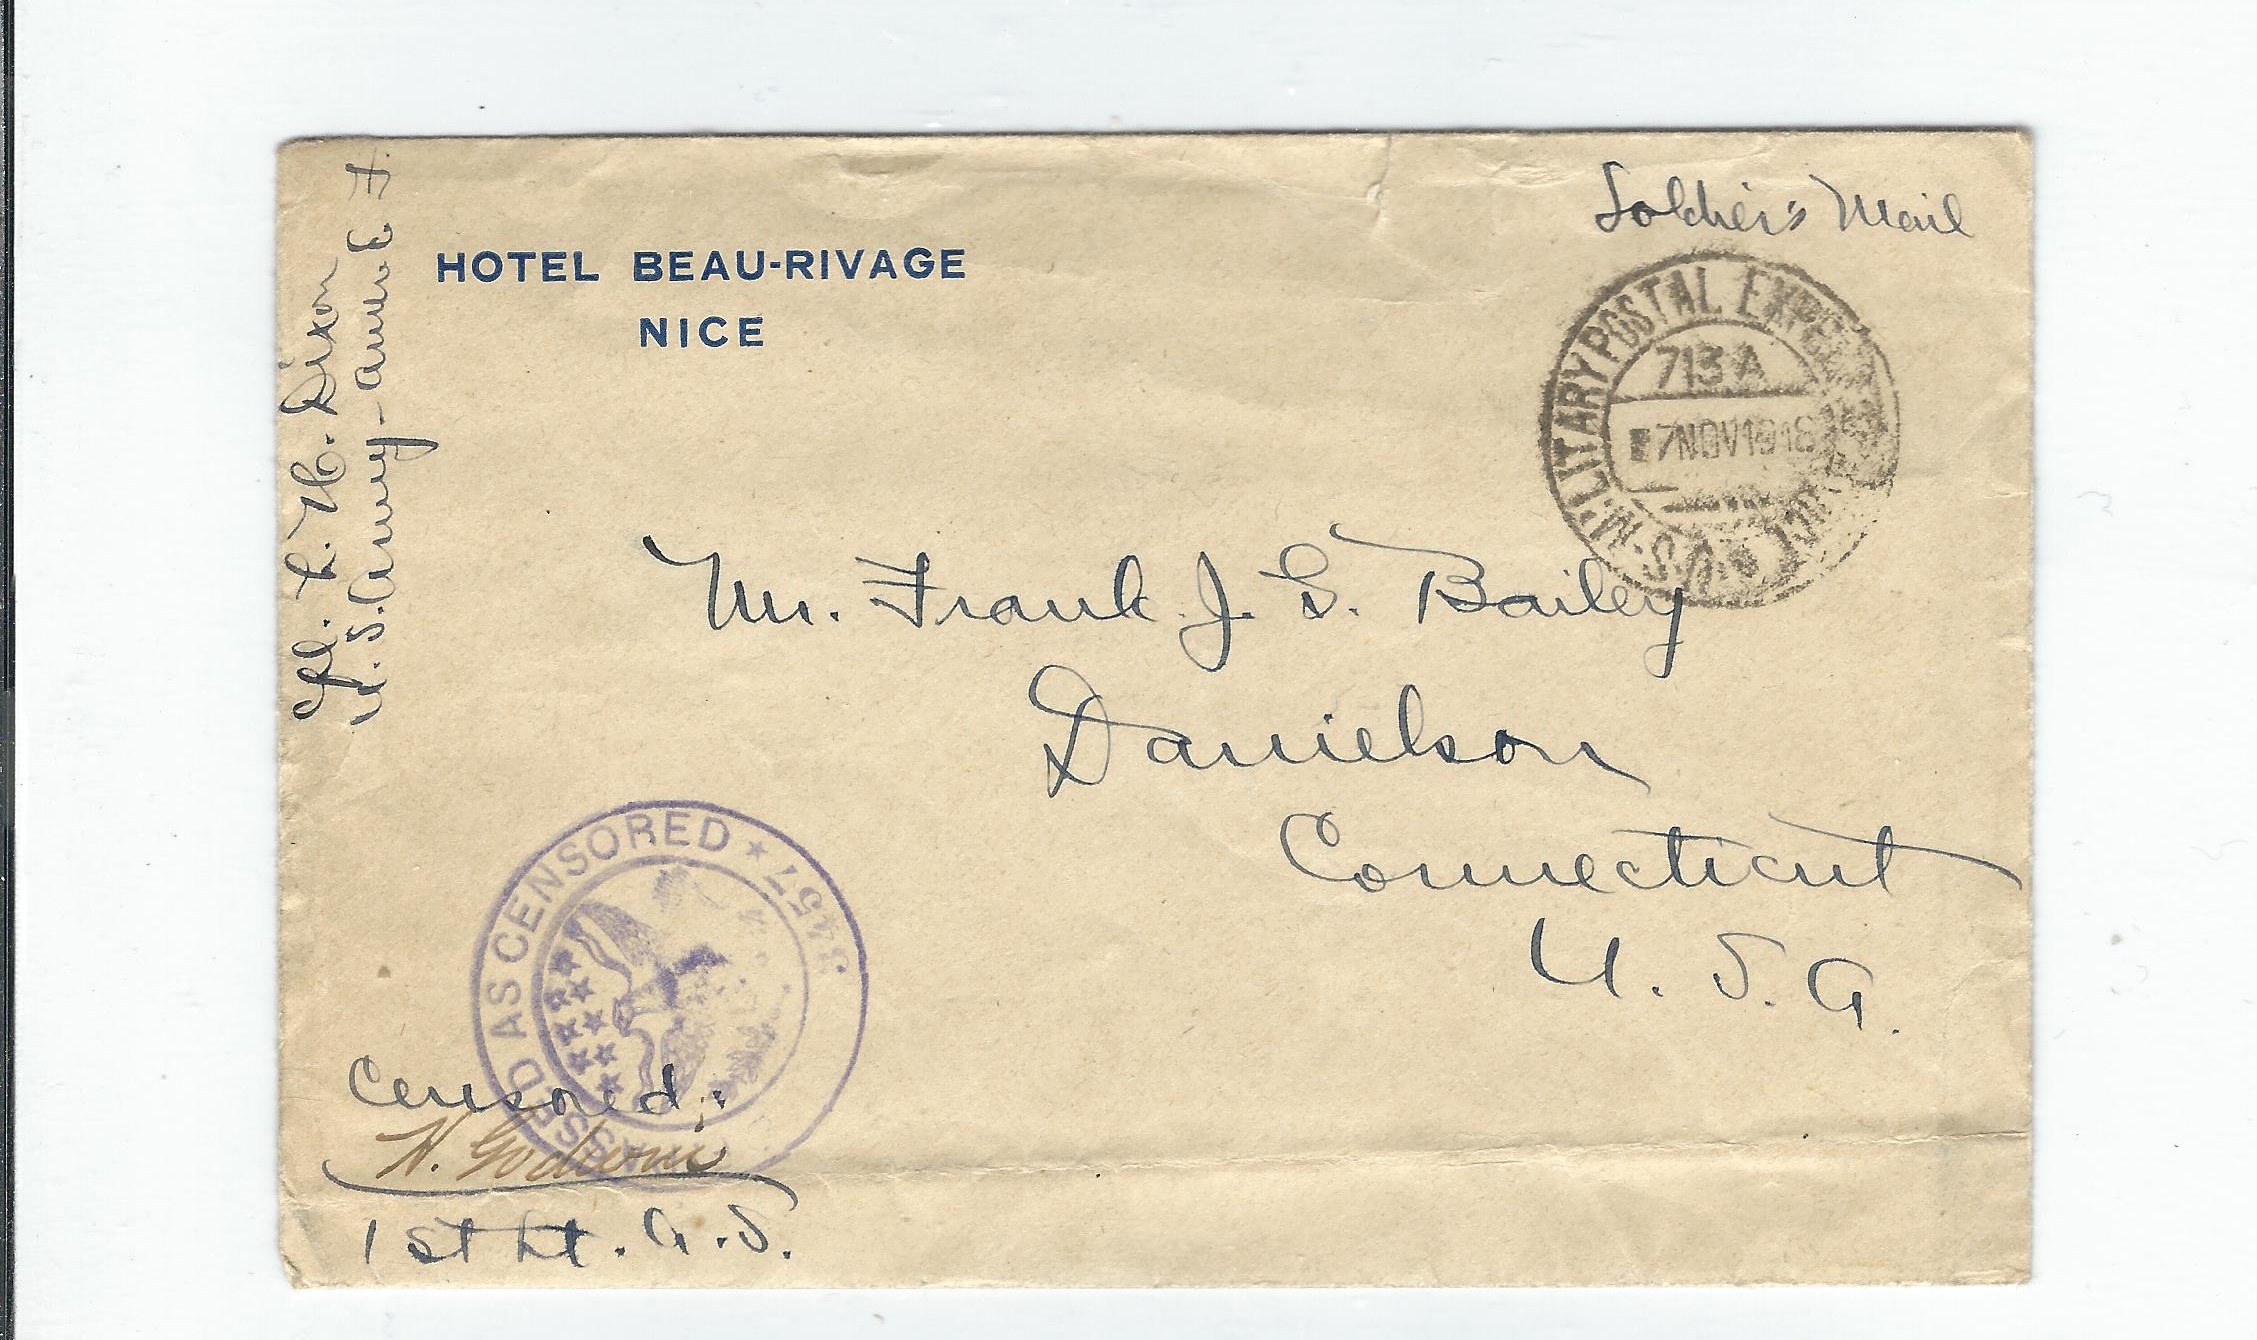 Cpl. L. H. Dixon
U. S. Army - Amer. E. F.
HOTEL BEAU-RIVAGE
NICE
Soldier's Mail
U.S. MILITARY POSTAL EXPRESS SERVICE
713 A
7 NOV 1918
Mr. Frank J. S. Bailey
Danielson
Connecticut
U. S. A.
PASSED AS CENSORED * 3457
Censored:
1st Lt. A. S.